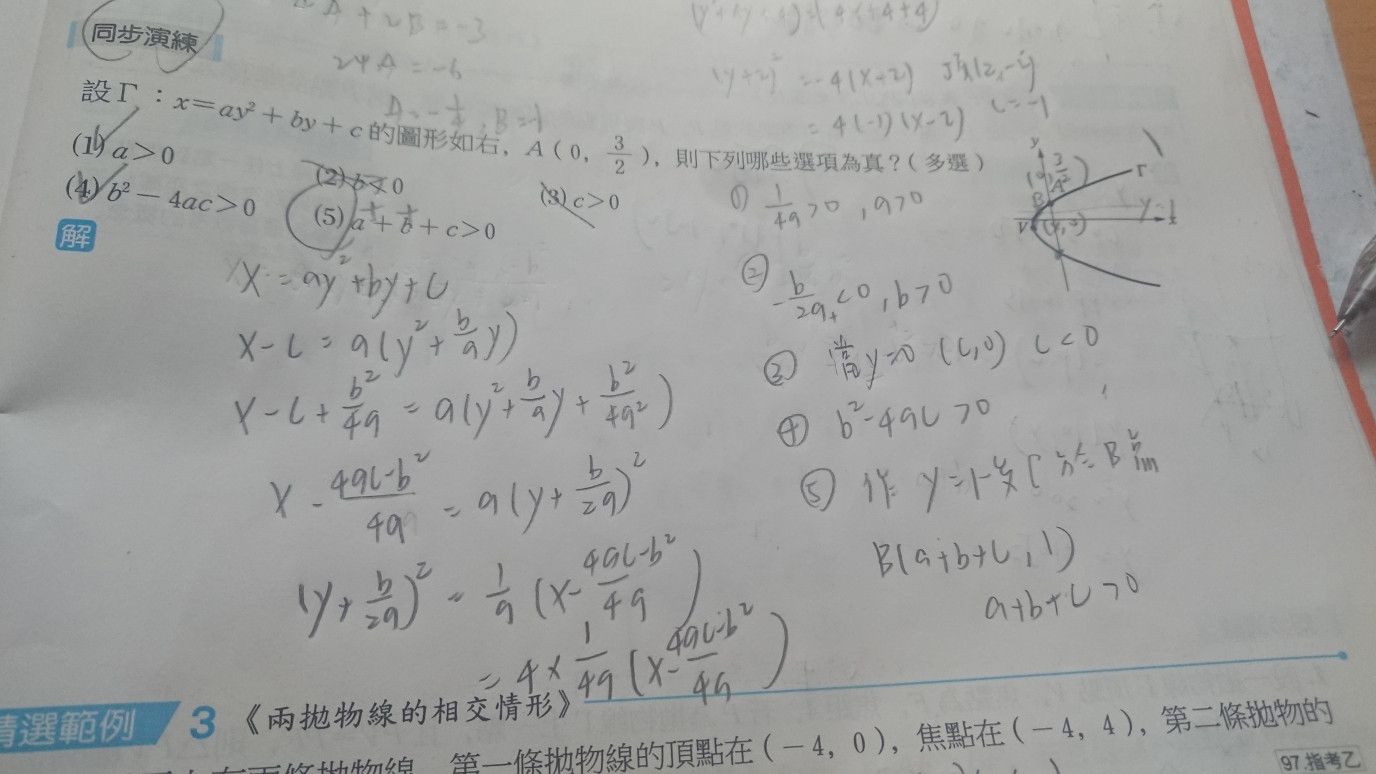 A + 2B = -3
24A = -6
(y+2)² = -4(x+2)
= 4(-1)(x-2)
c = -1
同步演練
設Γ：x＝ay²＋by＋c 的圖形如右，A（0，3/2），則下列哪些選項為真？（多選）
(1) a＞0
(2) b＜0
(3) c＞0
(4) b²－4ac＞0
(5) a＋b＋c＞0
解
x = ay²+by+c
x-c = a(y²+b/a y)
x-c+b²/4a = a(y²+b/a y+b²/4a²)
x-(4ac-b²)/4a = a(y+b/2a)²
(y+b/2a)² = 1/a (x-(4ac-b²)/4a)
= 4×1/4a (x-(4ac-b²)/4a)
① 1/4a>0 , a>0
② -b/2a<0 , b>0
③ 當y=0 (c,0) c<0
④ b²-4ac>0
⑤ 作 y=1 交Γ於 B點
B(a+b+c, 1)
a+b+c>0
y
A
B
Γ
V
精選範例 3 《兩拋物線的相交情形》
兩條拋物線，第一條拋物線的頂點在（－4，0），焦點在（－4，4），第二條拋物的
97.指考乙